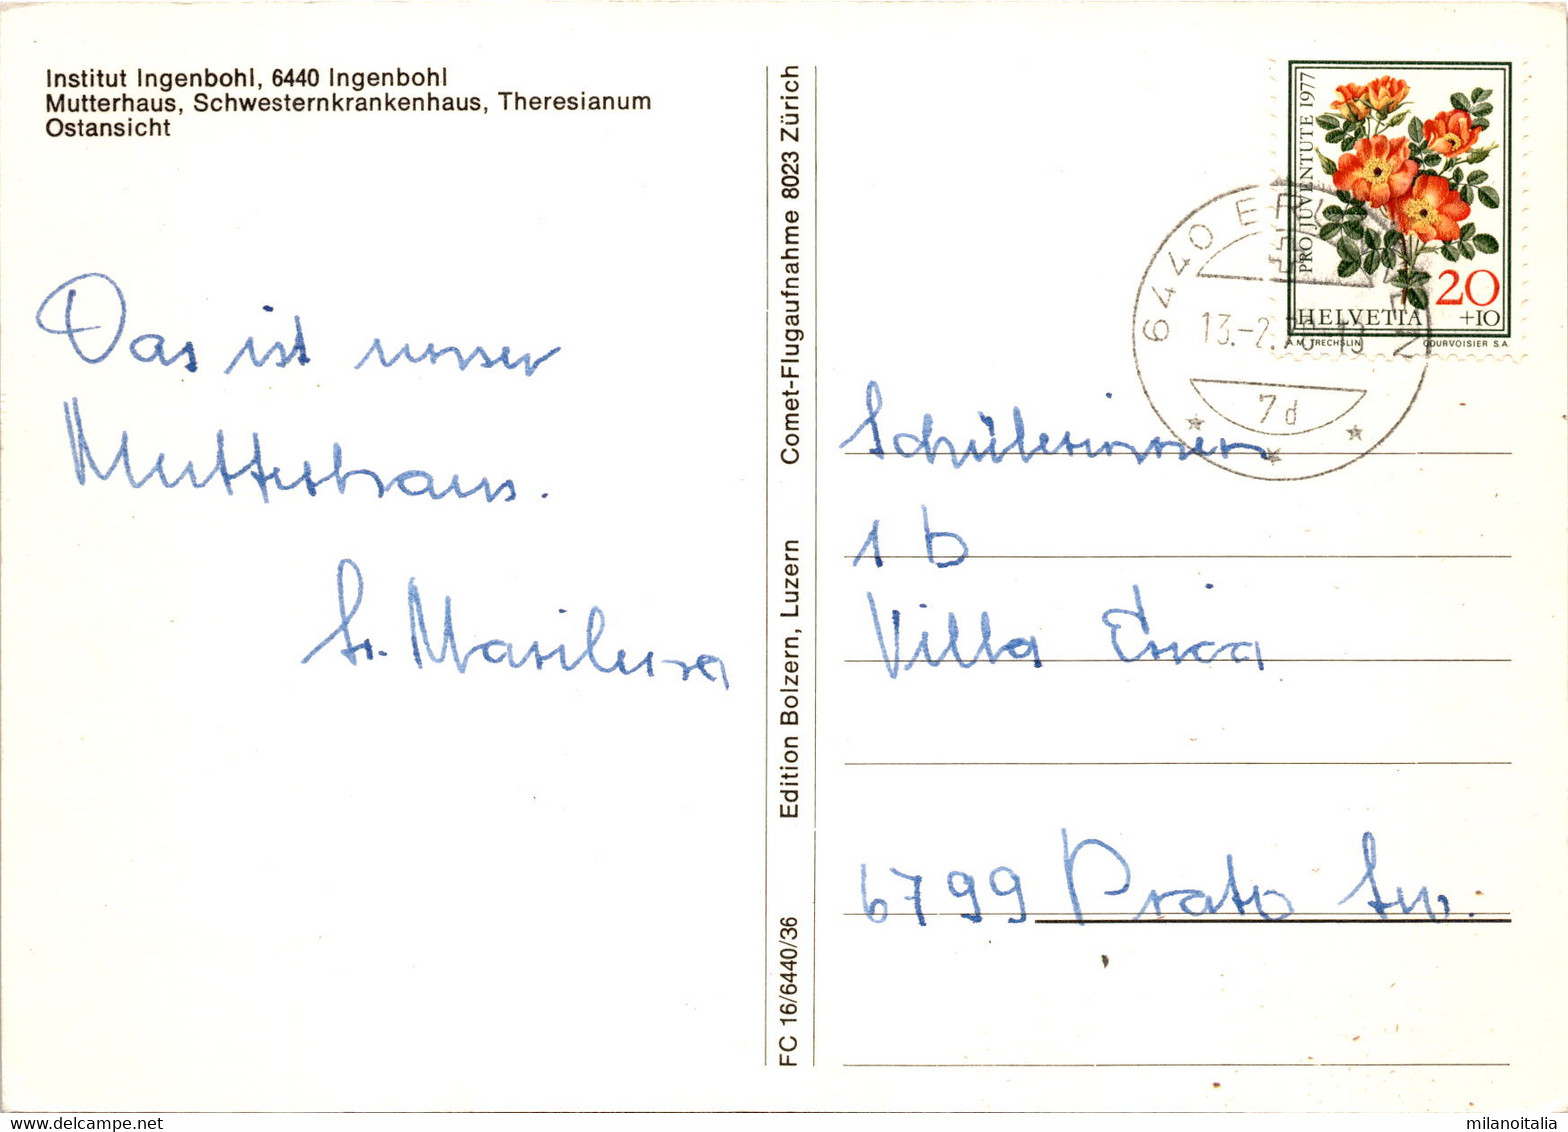 Institut Ingenbohl, 6440 Ingenbohl
Mutterhaus, Schwesternkrankenhaus, Theresianum
Ostansicht
Das ist unser
Mutterhaus.
Sr.
FC 16/6440/36 Edition Bolzern, Luzern Comet-Flugaufnahme 8023 Zürich
PRO JUVENTUTE 1977
20
+10
HELVETIA
A.M. TRECHSLIN COURVOISIER S.A.
6440
13.-2.78-13
7d
Schülerinnen
1 b
Villa Erica
6799 Prato
milanoitalia